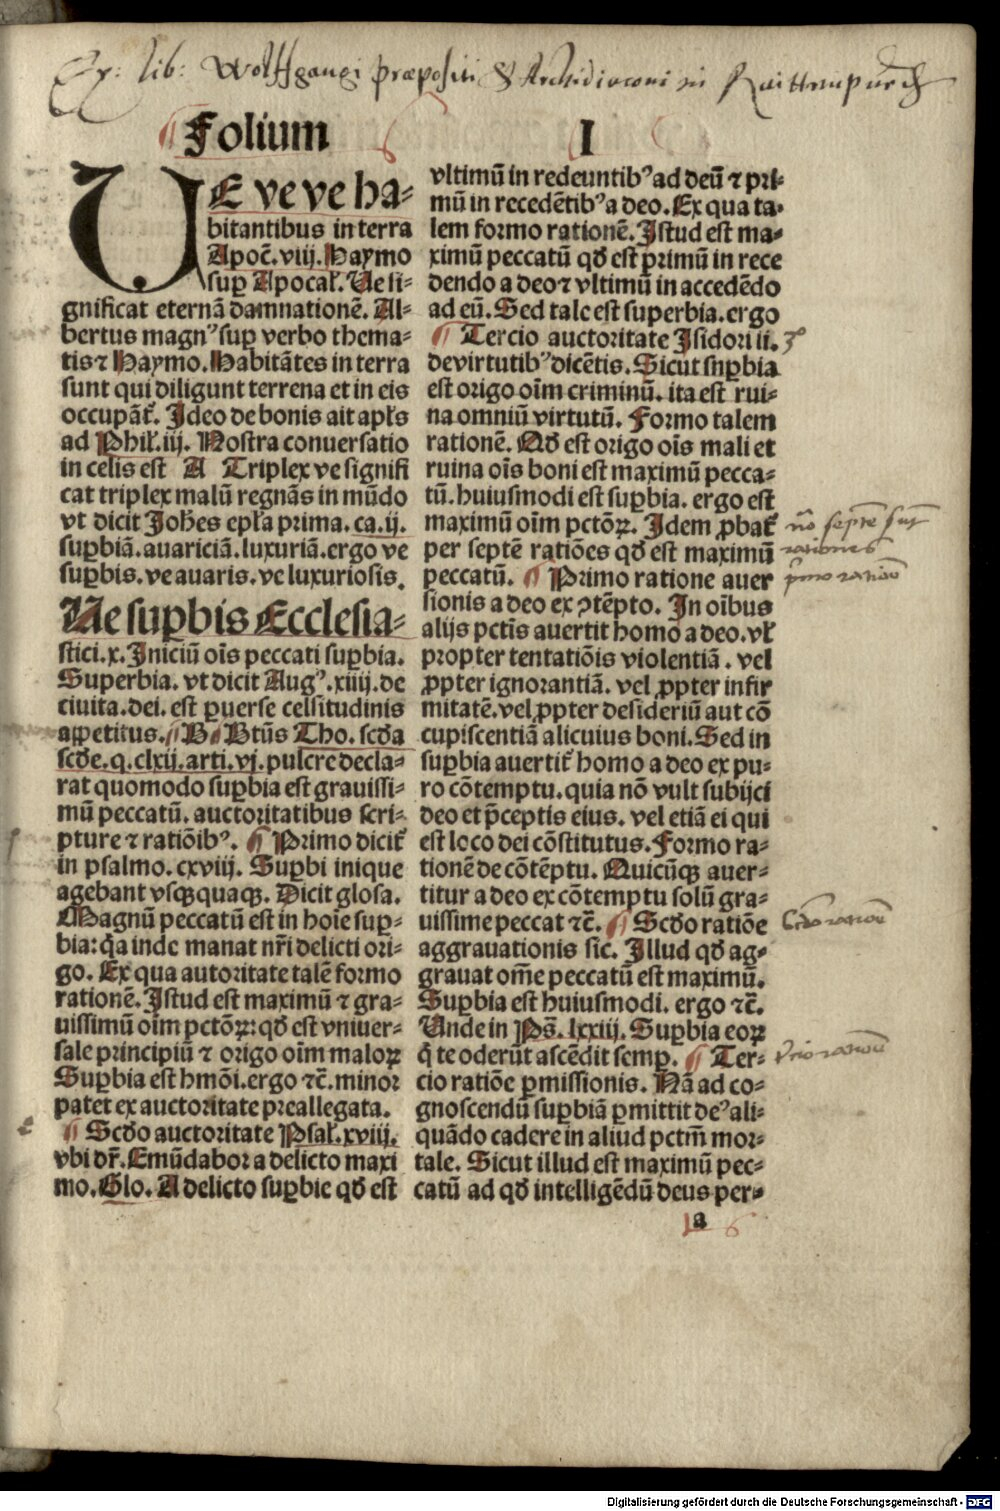 Ex: lib: Wolffgangi præpositi & Archidiaconi in Raittenpuech
Folium I
VE ve ve ha-
bitantibus in terra
Apoc̄. viij. Haymo
suꝑ Apocal̄. Ve si-
gnificat eternā damnationē. Al-
bertus magnꝰ suꝑ verbo thema-
tis ⁊ Haymo. Habitātes in terra
sunt qui diligunt terrena et in eis
occupāt̄. Ideo de bonis ait apl̄s
ad Phil̄. iij. Nostra conuersatio
in celis est A Triplex ve signifi
cat triplex malū regnās in mūdo
vt dicit Joh̄es epl̄a prima. ca. ij.
suꝑbiā. auariciā. luxuriā. ergo ve
suꝑbis. ve auaris. ve luxuriosis.
Ve suꝑbis Ecclesia-
stici. x. Iniciū oīs peccati suꝑbia.
Superbia. vt dicit Augꝰ. xiiij. de
ciuita. dei. est ꝑuerse celsitudinis
appetitus. ¶ B ¶ Btūs Tho. scd̄a
scd̄e. q. clxij. arti. vj. pulcre decla-
rat quomodo suꝑbia est grauissi-
mū peccatū. auctoritatibus scri-
pture ⁊ ratiōibꝰ. ¶ Primo dicit̄
in psalmo. cxviij. Suꝑbi inique
agebant vsqꝫquaqꝫ. Dicit glosa.
Magnū peccatū est in hoīe suꝑ-
bia: q̄a inde manat nr̄i delicti ori-
go. Ex qua autoritate talē formo
rationē. Istud est maximū ⁊ gra-
uissimū oīm pctōꝝ: qd̄ est vniuer-
sale principiū ⁊ origo oīm maloꝝ
Suꝑbia est hmōi. ergo ⁊c̄. minor
patet ex auctoritate preallegata.
¶ Scd̄o auctoritate Psal̄. xviij.
vbi dr̄. Emūdabor a delicto maxi
mo. Glo. A delicto suꝑbie qd̄ est
vltimū in redeuntibꝰ ad deū ⁊ pri-
mū in recedētibꝰ a deo. Ex qua ta-
lem formo rationē. Istud est ma-
ximū peccatū qd̄ est primū in rece
dendo a deo ⁊ vltimū in accedēdo
ad eū. Sed tale est superbia. ergo
¶ Tercio auctoritate Isidori ii.
de virtutibꝰ dicētis. Sicut suꝑbia
est origo oīm criminū. ita est rui-
na omniū virtutū. Formo talem
rationē. Qd̄ est origo oīs mali et
ruina oīs boni est maximū pecca-
tū. huiusmodi est suꝑbia. ergo est
maximū oīm pctōꝝ. Idem ꝓbat̄
per septē ratiōes qd̄ est maximū
peccatū. ¶ Primo ratione auer
sionis a deo ex ꝯtēpto. In oībus
alijs pctīs auertit homo a deo. vl̄
propter tentatiōis violentiā. vel
ꝓpter ignorantiā. vel ꝓpter infir
mitatē. vel ꝓpter desideriū aut cō
cupiscentiā alicuius boni. Sed in
suꝑbia auertit̄ homo a deo ex pu-
ro cōtemptu. quia nō vult subijci
deo et p̄ceptis eius. vel etiā ei qui
est loco dei cōstitutus. Formo ra-
tionē de cōtēptu. Quicūqꝫ auer-
titur a deo ex cōtemptu solū gra-
uissime peccat ⁊c̄. ¶ Scd̄o ratiōe
aggrauationis sic. Illud qd̄ ag-
grauat om̄e peccatū est maximū.
Suꝑbia est huiusmodi. ergo ⁊c̄.
Unde in Ps̄. lxxiij. Suꝑbia eoꝝ
q̄ te oderūt ascēdit semꝑ. ¶ Ter-
cio ratiōe ꝑmissionis. Nā ad co-
gnoscendū suꝑbiā ꝑmittit deꝰ ali-
quādo cadere in aliud pctm̄ mor-
tale. Sicut illud est maximū pec-
catū ad qd̄ intelligēdū deus per-
a
septē sūt
rationes
p̄mo ratiōe
Scd̄o ratiōe